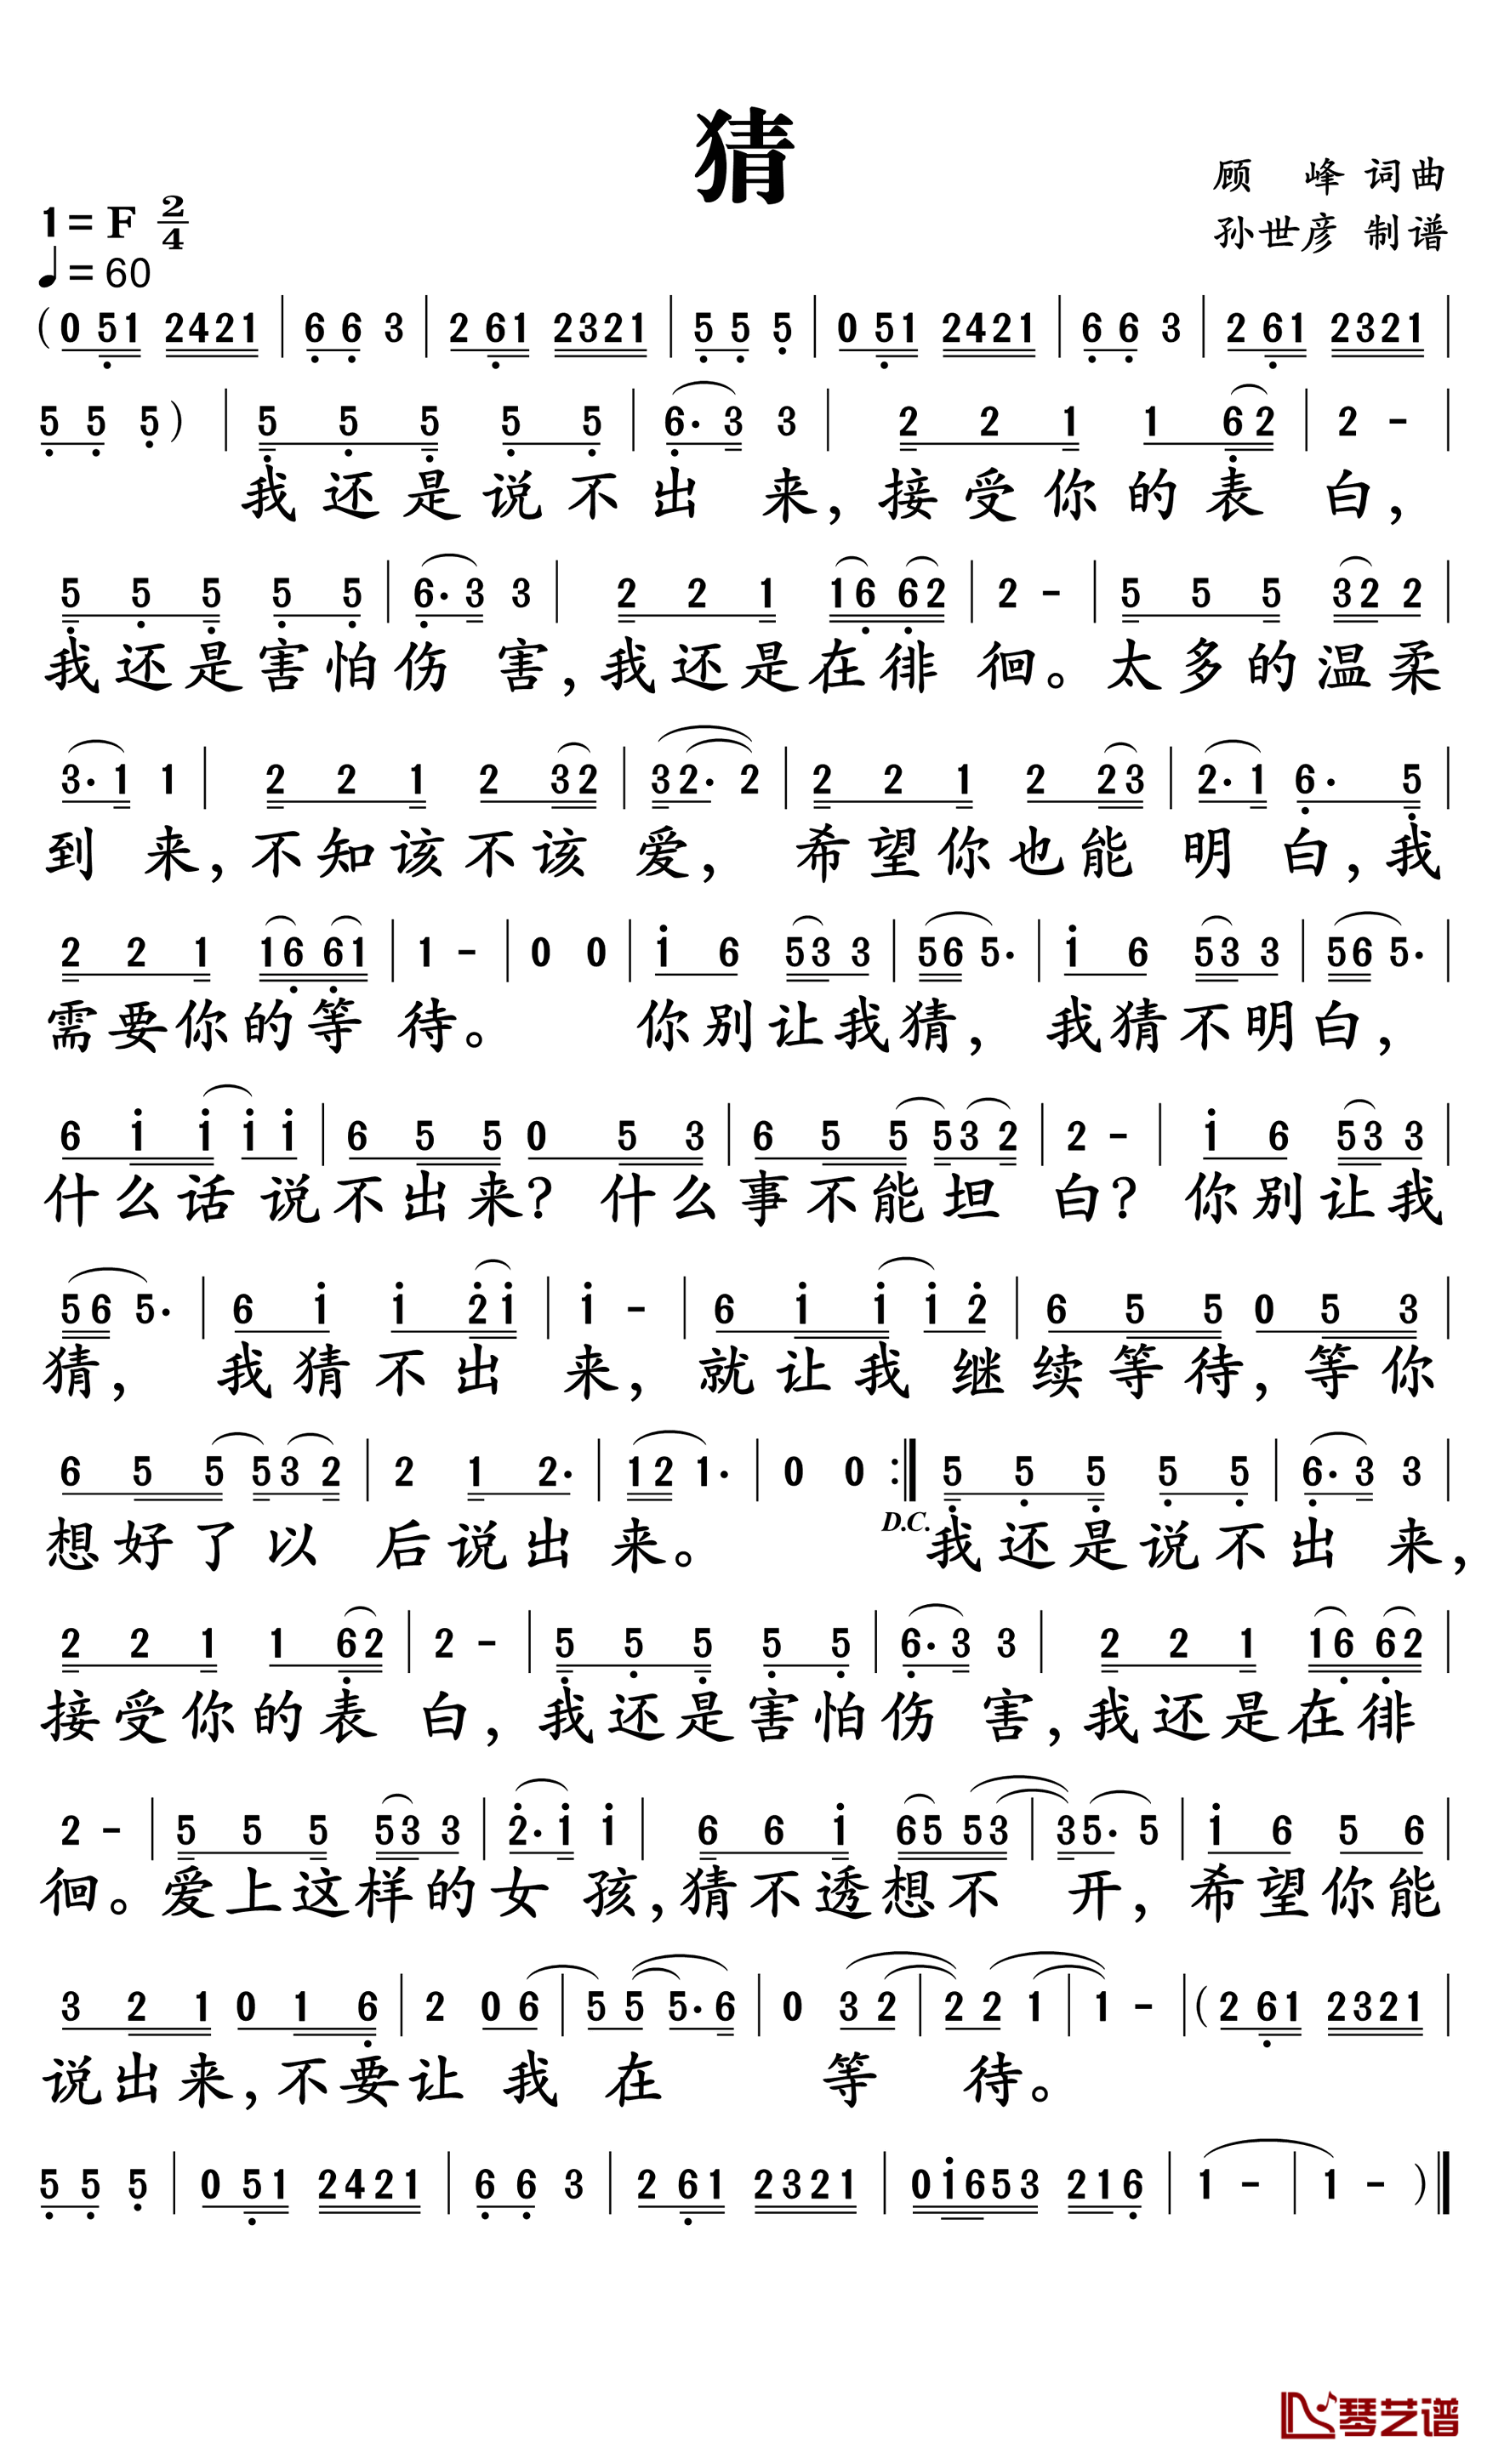 猜
顾 峰 词曲
孙世彦 制谱
1= F 2/4
♩= 60
(0 51 2421 | 6 6 3 | 2 61 2321 | 5 5 5 | 0 51 2421 | 6 6 3 | 2 61 2321 |
5 5 5) | 5 5 5 5 5 | 6· 3 3 | 2 2 1 1 62 | 2 - |
我还是说不出 来,接受你的表 白,
5 5 5 5 5 | 6· 3 3 | 2 2 1 16 62 | 2 - | 5 5 5 32 2 |
我还是害怕伤 害,我还是在徘 徊。太多的温柔
3· 1 1 | 2 2 1 2 32 | 32· 2 | 2 2 1 2 23 | 2· 1 6· 5 |
到 来,不知该不该 爱, 希望你也能 明 白,我
2 2 1 16 61 | 1 - | 0 0 | i 6 53 3 | 56 5· | i 6 53 3 | 56 5· |
需要你的等 待。 你别让我猜, 我猜不明白,
6 i i i i | 6 5 5 0 5 3 | 6 5 5 53 2 | 2 - | i 6 53 3 |
什么话 说不出来? 什么事不能坦 白? 你别让我
56 5· | 6 i i 2i | i - | 6 i i i 2 | 6 5 5 0 5 3 |
猜, 我猜不出 来, 就让我 继续等待,等你
6 5 5 53 2 | 2 1 2· | 12 1· | 0 0 :| 5 5 5 5 5 | 6· 3 3 |
D.C.
想好了以 后说出 来。 我还是说不出 来,
2 2 1 1 62 | 2 - | 5 5 5 5 5 | 6· 3 3 | 2 2 1 16 62 |
接受你的表 白,我还是害怕伤 害,我还是在徘
2 - | 5 5 5 53 3 | 2· i i | 6 6 i 65 53 | 35· 5 | i 6 5 6 |
徊。爱上这样的女 孩,猜不透想不 开, 希望你能
3 2 1 0 1 6 | 2 0 6 | 5 5 5· 6 | 0 3 2 | 2 2 1 | 1 - | (2 61 2321 |
说出来,不要让 我 在 等 待。
5 5 5 | 0 51 2421 | 6 6 3 | 2 61 2321 | 0i653 216 | 1 - | 1 - ) ‖
琴艺谱